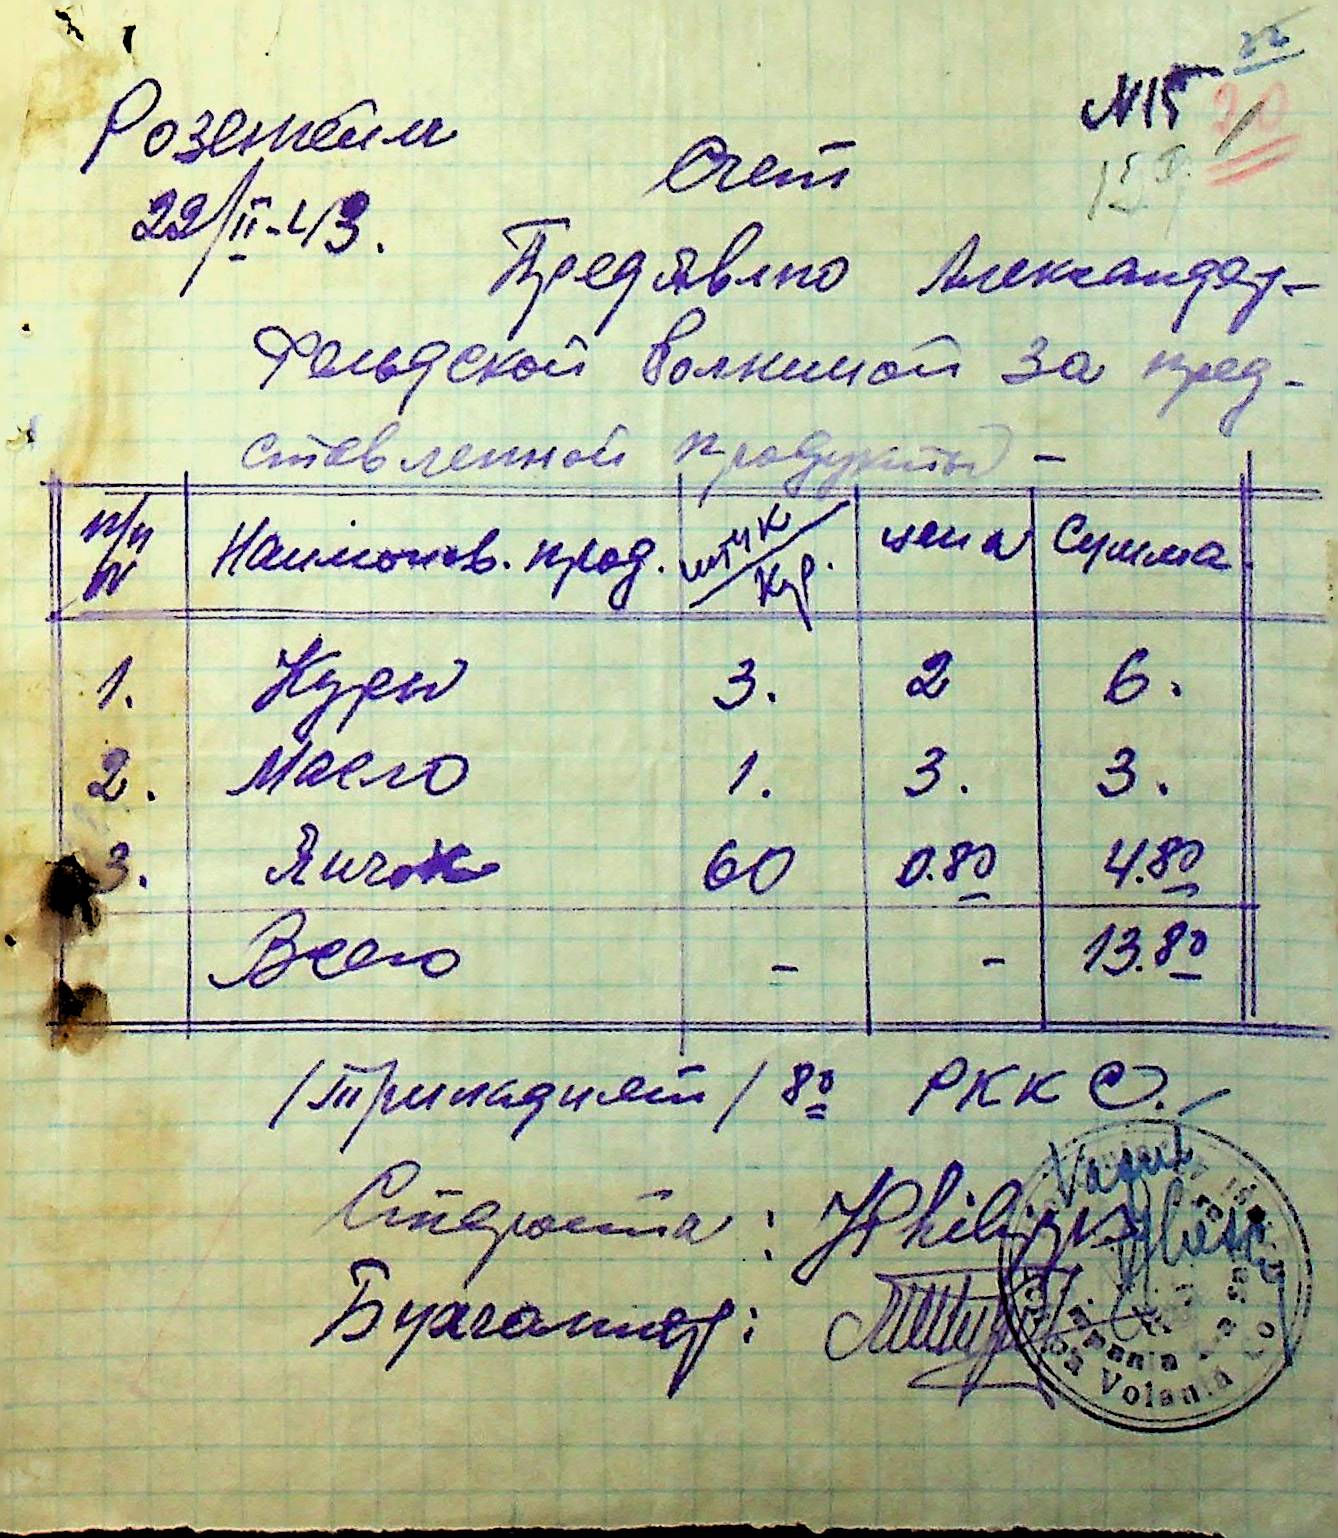 22
№15
20
Розенфельд
22/II-43.
Счет
Предявлно Александер-
фельдской волнимой за пред-
ставленной продукты -
п/п № Наименов. прод. штук/Кгр. цена Сумма
1. Куры 3. 2 6.
2. Масло 1. 3. 3.
3. Яичок 60 0.80 4.80
Всего - - 13.80
/Тринадцят/ 80 РККС.
Староста: Philipps
Бухгалтер:
Volantă